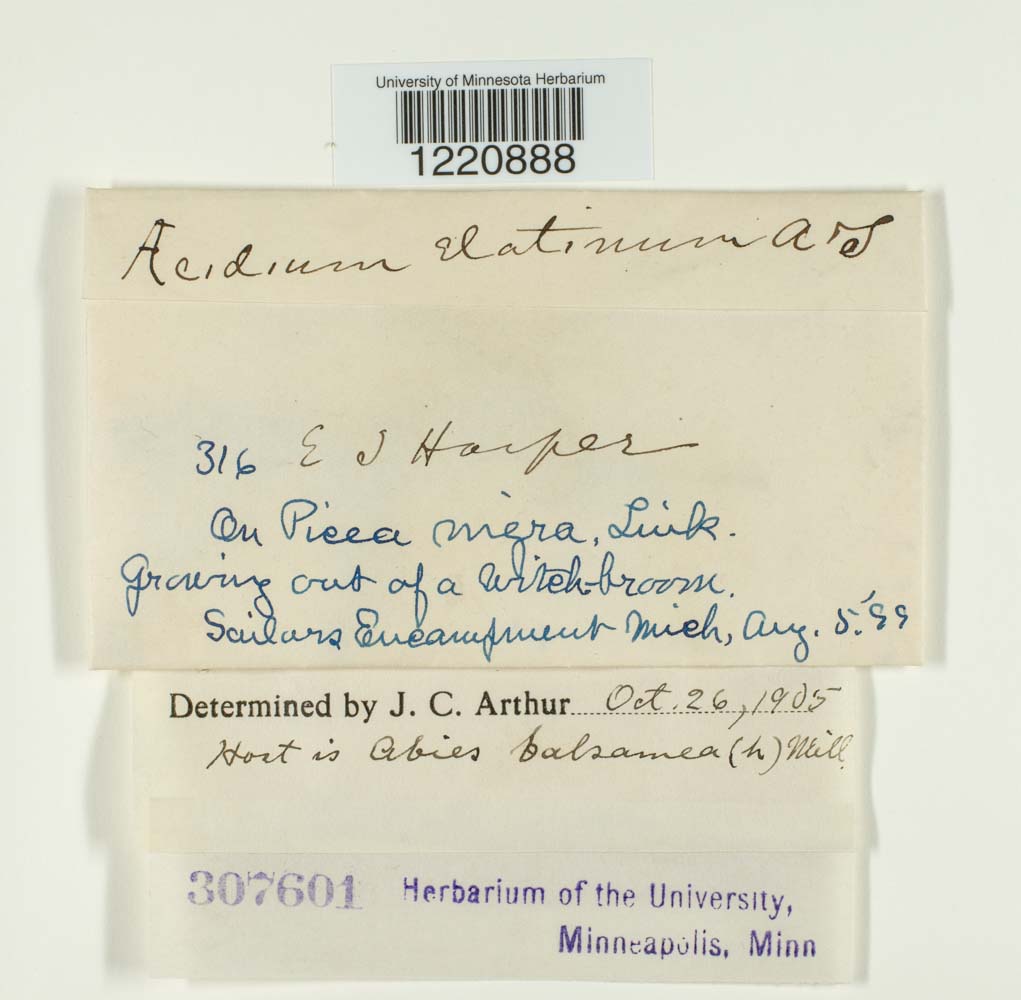 University of Minnesota Herbarium
1220888
Æcidium Elatinum A & S
316 E T Harper
On Picea nigra, Link.
Growing out of a witch-broom.
Sailors Encampment Mich, Aug. 5. '99
Determined by J. C. Arthur Oct. 26, 1905
Host is Abies balsamea (L) Mill.
307601 Herbarium of the University,
Minneapolis, Minn